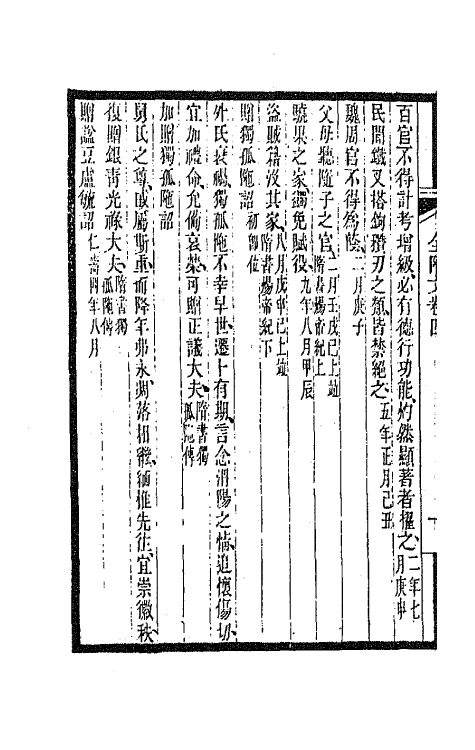 全隋文卷四
百官不得計考增級必有德行功能灼然顯著者擢之二年七月庚申
民間鐵叉搭鉤䂎刃之類皆禁絕之五年正月己丑
魏周官不得爲蔭二月庚子
父母聽隨子之官二月壬戌已上並隋書煬帝紀上
驍果之家蠲免賦役九年八月甲辰
盜賊籍沒其家八月戊申已上並隋書煬帝紀下
贈獨孤陁詔初卽位
外氏衰禍獨孤陁不幸早世遷卜有期言念渭陽之情追懷傷切
宜加禮命允備哀榮可贈正議大夫隋書獨孤陁傳
加贈獨孤陁詔
舅氏之尊戚屬斯重而降年弗永凋落相繼緬惟先往宜崇徽秩
復贈銀青光祿大夫隋書獨孤陁傳
贈謚豆盧毓詔仁壽四年八月